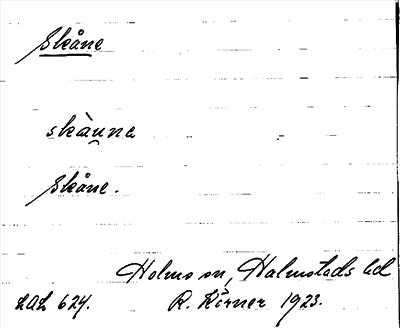 Skåne
skàu̯na
Skåne.
Holms sn, Halmstads hd
LAL 624. R. Körner 1923.